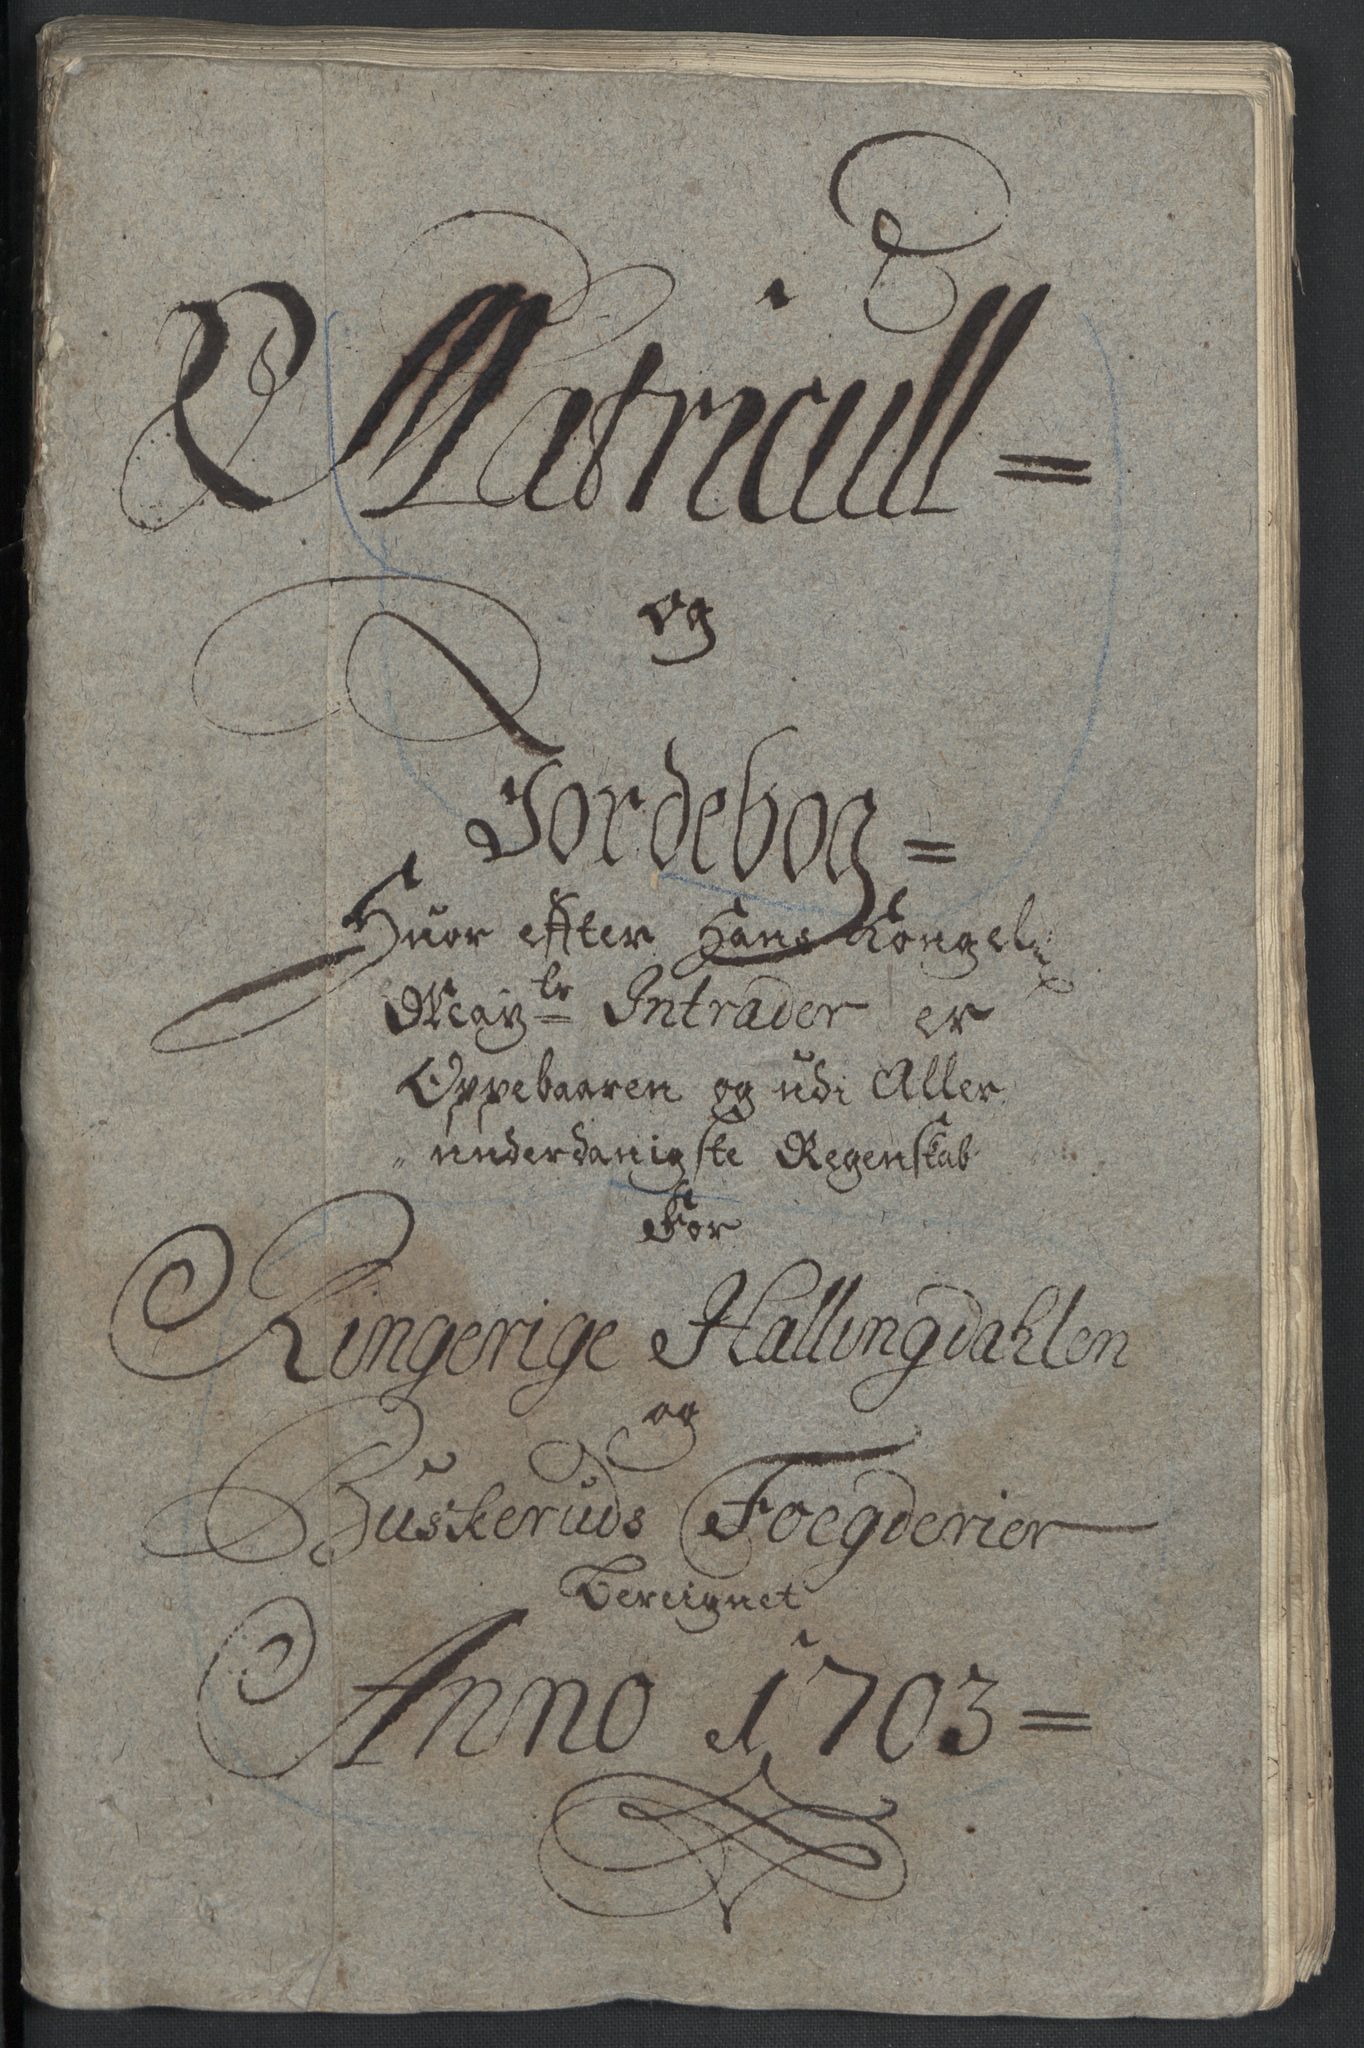 Matricull=
og
Jordebog=
Huor effter Hans Kongel:
May:ts Intrader er
Oppebaaren og udi Aller
„underdanigste Regenskab
For
Ringerige Hallingdahlen
og
Buskeruds Foegderier
Bereignet
Anno 1703=